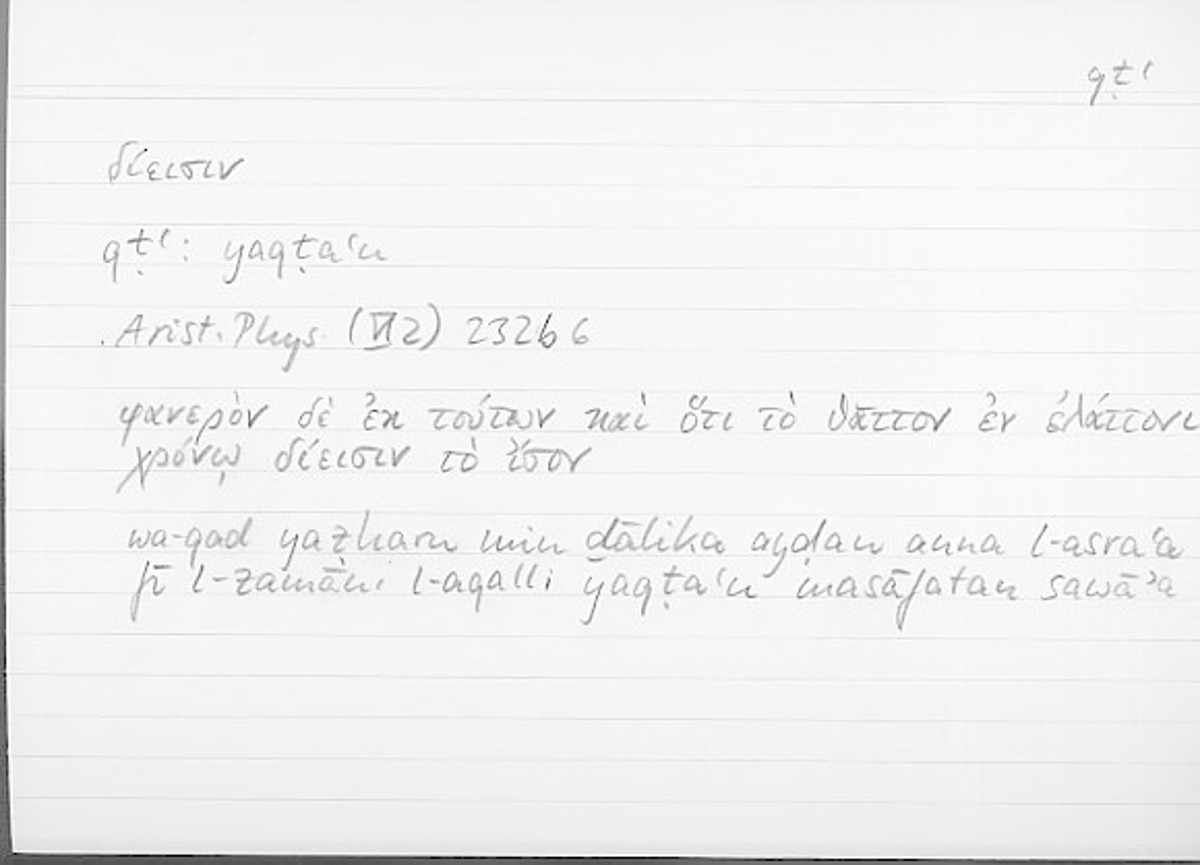 qṭʿ
δίεισιν
qṭʿ: yaqṭaʿu
Arist. Phys. (VI 2) 232b6
φανερὸν δὲ ἐκ τούτων καὶ ὅτι τὸ θᾶττον ἐν ἐλάττονι
χρόνῳ δίεισιν τὸ ἴσον
wa-qad yaẓharu min ḏālika ayḍan anna l-asraʿa
fī l-zamāni l-aqalli yaqṭaʿu masāfatan sawāʾa